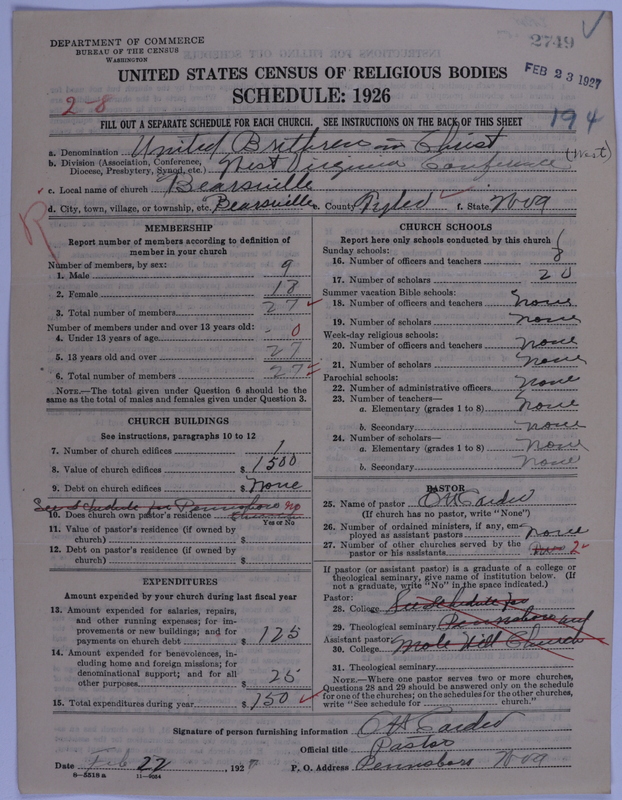 DEPARTMENT OF COMMERCE
BUREAU OF THE CENSUS
WASHINGTON
2749
FEB 23 1927
UNITED STATES CENSUS OF RELIGIOUS BODIES
SCHEDULE: 1926
2-8
194
FILL OUT A SEPARATE SCHEDULE FOR EACH CHURCH. SEE INSTRUCTIONS ON THE BACK OF THIS SHEET
a. Denomination United Brethren in Christ
b. Division (Association, Conference, Diocese, Presbytery, Synod, etc.) West Virginia Conference (West)
c. Local name of church Bearsville
d. City, town, village, or township, etc. Bearsville e. County Tyler f. State W Va
R
MEMBERSHIP
Report number of members according to definition of
member in your church
Number of members, by sex:
1. Male 9
2. Female 18
3. Total number of members 27
Number of members under and over 13 years old:
4. Under 13 years of age 0
5. 13 years old and over 27
6. Total number of members 27
NOTE.—The total given under Question 6 should be the
same as the total of males and females given under Question 3.
CHURCH BUILDINGS
See instructions, paragraphs 10 to 12
7. Number of church edifices 1
8. Value of church edifices $ 1500
9. Debt on church edifices $ None
See schedule for Pennsboro no
10. Does church own pastor's residence
Yes or No
11. Value of pastor's residence (if owned by
church) $
12. Debt on pastor's residence (if owned by
church) $
EXPENDITURES
Amount expended by your church during last fiscal year
13. Amount expended for salaries, repairs,
and other running expenses; for im-
provements or new buildings; and for
payments on church debt $ 125
14. Amount expended for benevolences, in-
cluding home and foreign missions; for
denominational support; and for all
other purposes $ 25
15. Total expenditures during year $ 150
CHURCH SCHOOLS
Report here only schools conducted by this church
Sunday schools:
16. Number of officers and teachers 8
17. Number of scholars 20
Summer vacation Bible schools:
18. Number of officers and teachers None
19. Number of scholars none
Week-day religious schools:
20. Number of officers and teachers none
21. Number of scholars none
Parochial schools:
22. Number of administrative officers none
23. Number of teachers—
a. Elementary (grades 1 to 8) None
b. Secondary none
24. Number of scholars—
a. Elementary (grades 1 to 8) None
b. Secondary None
PASTOR
25. Name of pastor
(If church has no pastor, write "None")
26. Number of ordained ministers, if any, em-
ployed as assistant pastors none
27. Number of other churches served by the
pastor or his assistants 2
If pastor (or assistant pastor) is a graduate of a college or
theological seminary, give name of institution below. (If
not a graduate, write "No" in the space indicated.)
Pastor:
28. College See Schedule for
29. Theological seminary Pennsboro and
Assistant pastor:
30. College Mole Hill Church
31. Theological seminary
NOTE.—Where one pastor serves two or more churches,
Questions 28 and 29 should be answered only on the schedule
for one of the churches; on the schedules for the other churches,
write "See schedule for church."
Signature of person furnishing information
Official title Pastor
Date Feb 22, 192 P. O. Address Pennsboro W Va
8—5518 a 11—9024